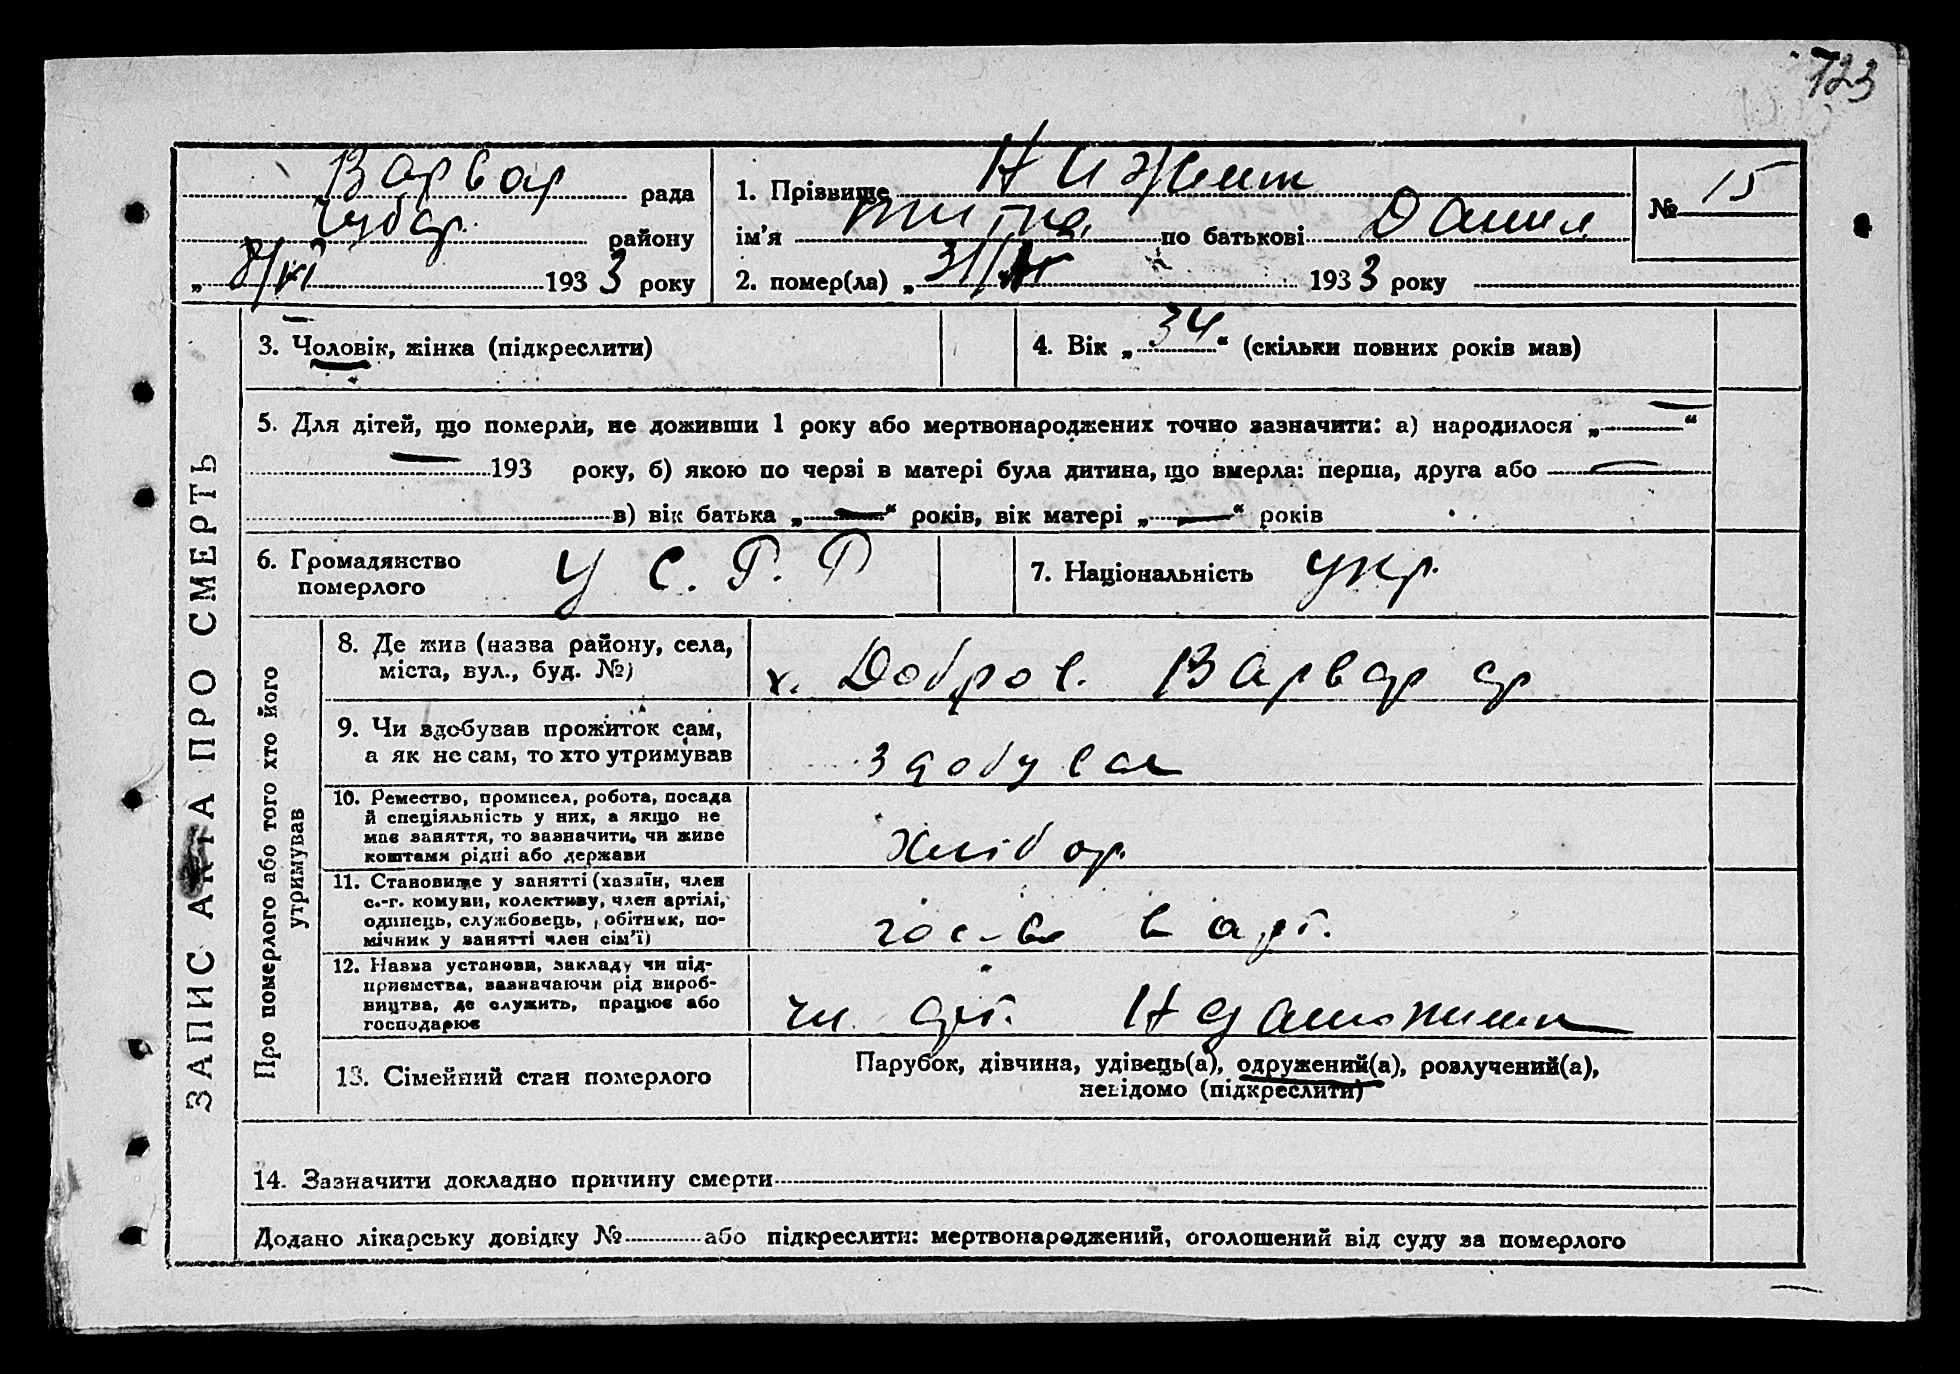 723
Варвар рада
Чубар. району
„ 8/VI 1933 року
1. Прізвище Нижник
ім'я по батькові Данил.
№ 15
2. помер(ла) „ 31/ 1933 року
ЗАПИС АКТА ПРО СМЕРТЬ
3. Чоловік, жінка (підкреслити)
4. Вік „ 34 “ (скільки повних років мав)
5. Для дітей, що померли, не доживши 1 року або мертвонароджених точно зазначити: а) народилося „ — “
— 193 року, б) якою по черзі в матері була дитина, що вмерла: перша, друга або —
в) вік батька „ — “ років, вік матері „ — “ років
6. Громадянство
померлого
У С. Р. Р
7. Національність укр.
Про померлого або того хто його
утримував
8. Де жив (назва району, села,
міста, вул., буд. №)
х. Добров. Варвар ср
9. Чи здобував прожиток сам,
а як не сам, то хто утримував
здобував
10. Ремество, промисел, робота, посада
й спеціяльність у них, а якщо не
має заняття, то зазначити, чи живе
коштами рідні або держави
хлібор.
11. Становище у занятті (хазяїн, член
с.-г. комуни, колективу, член артілі,
одинець, службовець, робітник, по-
мічник у занятті член сім'ї)
в арт.
12. Назва установи, закладу чи під-
приємства, зазначаючи рід вироб-
ництва, де служить, працює або
господарює
13. Сімейний стан померлого
Парубок, дівчина, удівець(а), одружений(а), розлучений(а),
невідомо (підкреслити)
14. Зазначити докладно причину смерти
Додано лікарську довідку № або підкреслити: мертвонароджений, оголошений від суду за померлого